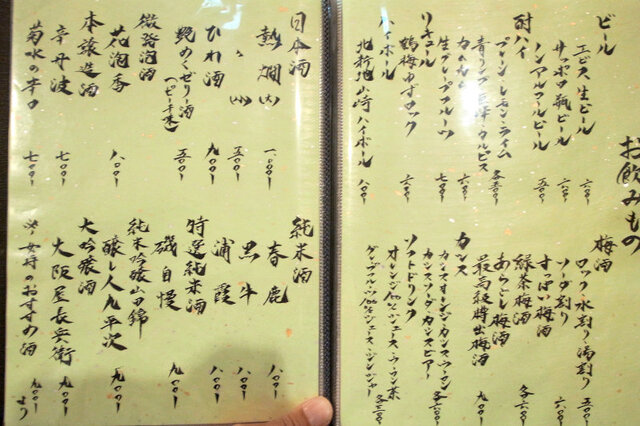 お飲みもの
ビール
エビス生ビール 六〇〇
サッポロ瓶ビール 六〇〇
ノンアルコールビール 五〇〇
酎ハイ
プレーン・レモン・ライム
青リンゴ・巨峰・カルピス 各五〇〇
カルルル 六〇〇
生グレープフルーツ 七〇〇
リキュール
鶴梅ゆずロック 六〇〇
ハイボール
北新地山崎ハイボール 八〇〇
梅酒
ロック・水割り・湯割り 五〇〇
ソーダ割り
すっぱい梅酒 六〇〇
緑茶梅酒
あらごし梅酒 各六〇〇
最高級蜂出梅酒 九〇〇
カシス
カシスオレンジ・カシスウーロン
カシスソーダ・カシスビアー 各六〇〇
ソフトドリンク
オレンジ100%ジュース・ウーロン茶
グレープフルーツ100%ジュース・ジンジャー 各三〇〇
日本酒
熱燗(大) 一、〇〇〇
〃 (小) 五〇〇
ひれ酒 九〇〇
艶めくゼリー酒(ピーチ味) 五〇〇
微発泡酒
花泡香 八〇〇
本醸造酒
辛丹波 七〇〇
菊水の辛口 七〇〇
純米酒
春鹿 八〇〇
黒牛 八〇〇
浦霞 八〇〇
特選純米酒
磯自慢 九〇〇
純米吟醸山田錦
醸し人九平次 九〇〇
大吟醸酒
大阪屋長兵衛 九〇〇
※女将のおすすめ酒 九〇〇より